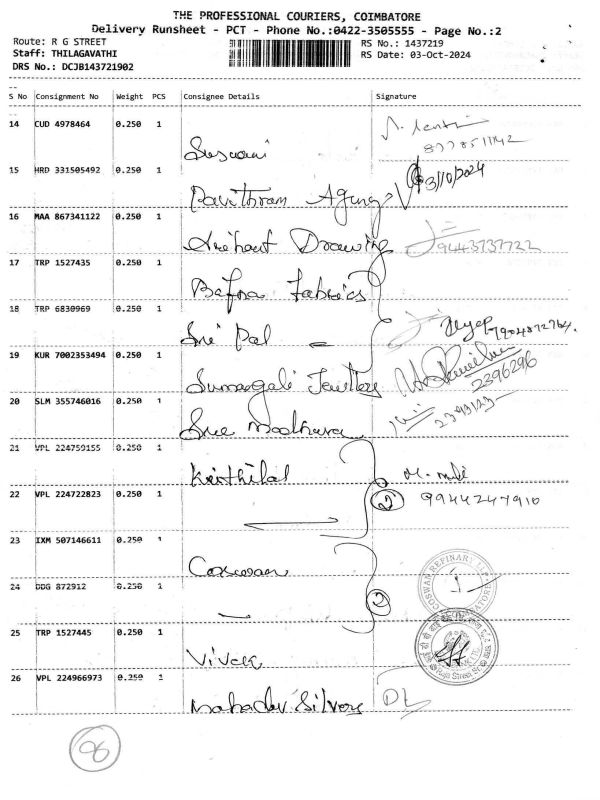 THE PROFESSIONAL COURIERS, COIMBATORE
Delivery Runsheet - PCT - Phone No.:0422-3505555 - Page No.:2
Route: R G STREET
Staff: THILAGAVATHI
DRS No.: DCJB143721902
RS No.: 1437219
RS Date: 03-Oct-2024
S No Consignment No Weight PCS Consignee Details Signature
14 CUD 4978464 0.250 1
15 HRD 331505492 0.250 1
Pavithram 3/10/2024
16 MAA 867341122 0.250 1
Arehant Drawing 9443737722
17 TRP 1527435 0.250 1
Bafna Fabrics
18 TRP 6830969 0.250 1
Sri Pal 7904872764.
19 KUR 7002353494 0.250 1
2396296
20 SLM 355746016 0.250 1
Sree Madhava
21 VPL 224759155 0.250 1
Kirthilal
22 VPL 224722823 0.250 1
2 9944247910
23 IXM 507146611 0.250 1
24 DDG 872912 0.250 1
2
COSWAN REFINARY
25 TRP 1527445 0.250 1
Vivek
26 VPL 224966973 0.250 1
Mahadev Silvers
96